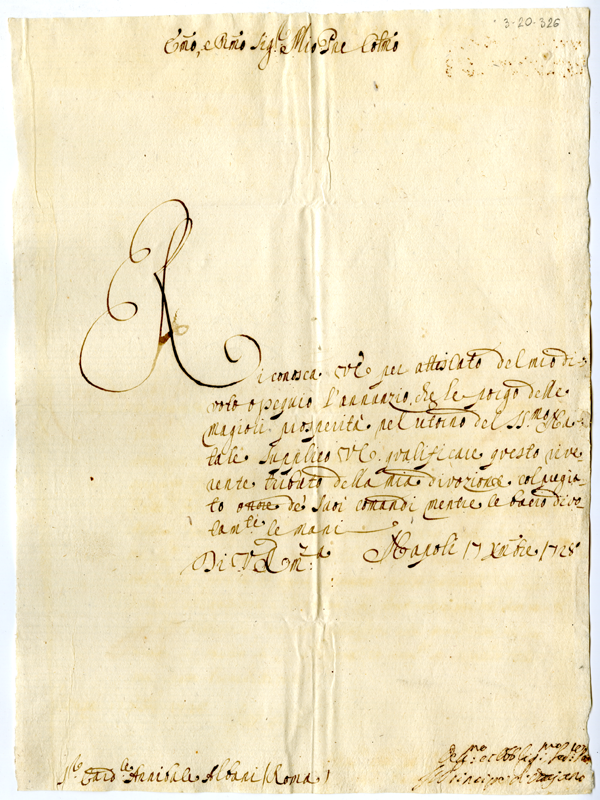 3-20-326
Emo, e Rmo Sigre Mio Pne Colmo
Riconosca VE per attestato del mio di-
voto ossequio l'annunzio, che le porgo delle
magiori prosperità nel ritorno del SS.mo Na-
tale. Supplico VE. gratificare questo rive-
rente tributo della mia divozione col pregia-
to onore de' suoi comandi mentre le bacio divo-
tam.te le mani
Di V. Em.za Napoli 17 Xmbre 1728
Sr. Card.le Annibale Albani (Roma)
Il Principe d'